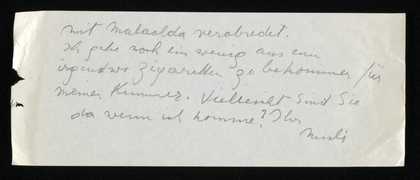 mit Mataolda verabredet.
Ich gehe noch ein wenig aus um
irgendwo Zigaretten zu bekommen für
meinen Kummer. Vielleicht sind Sie
da wenn ich komme? Ihr